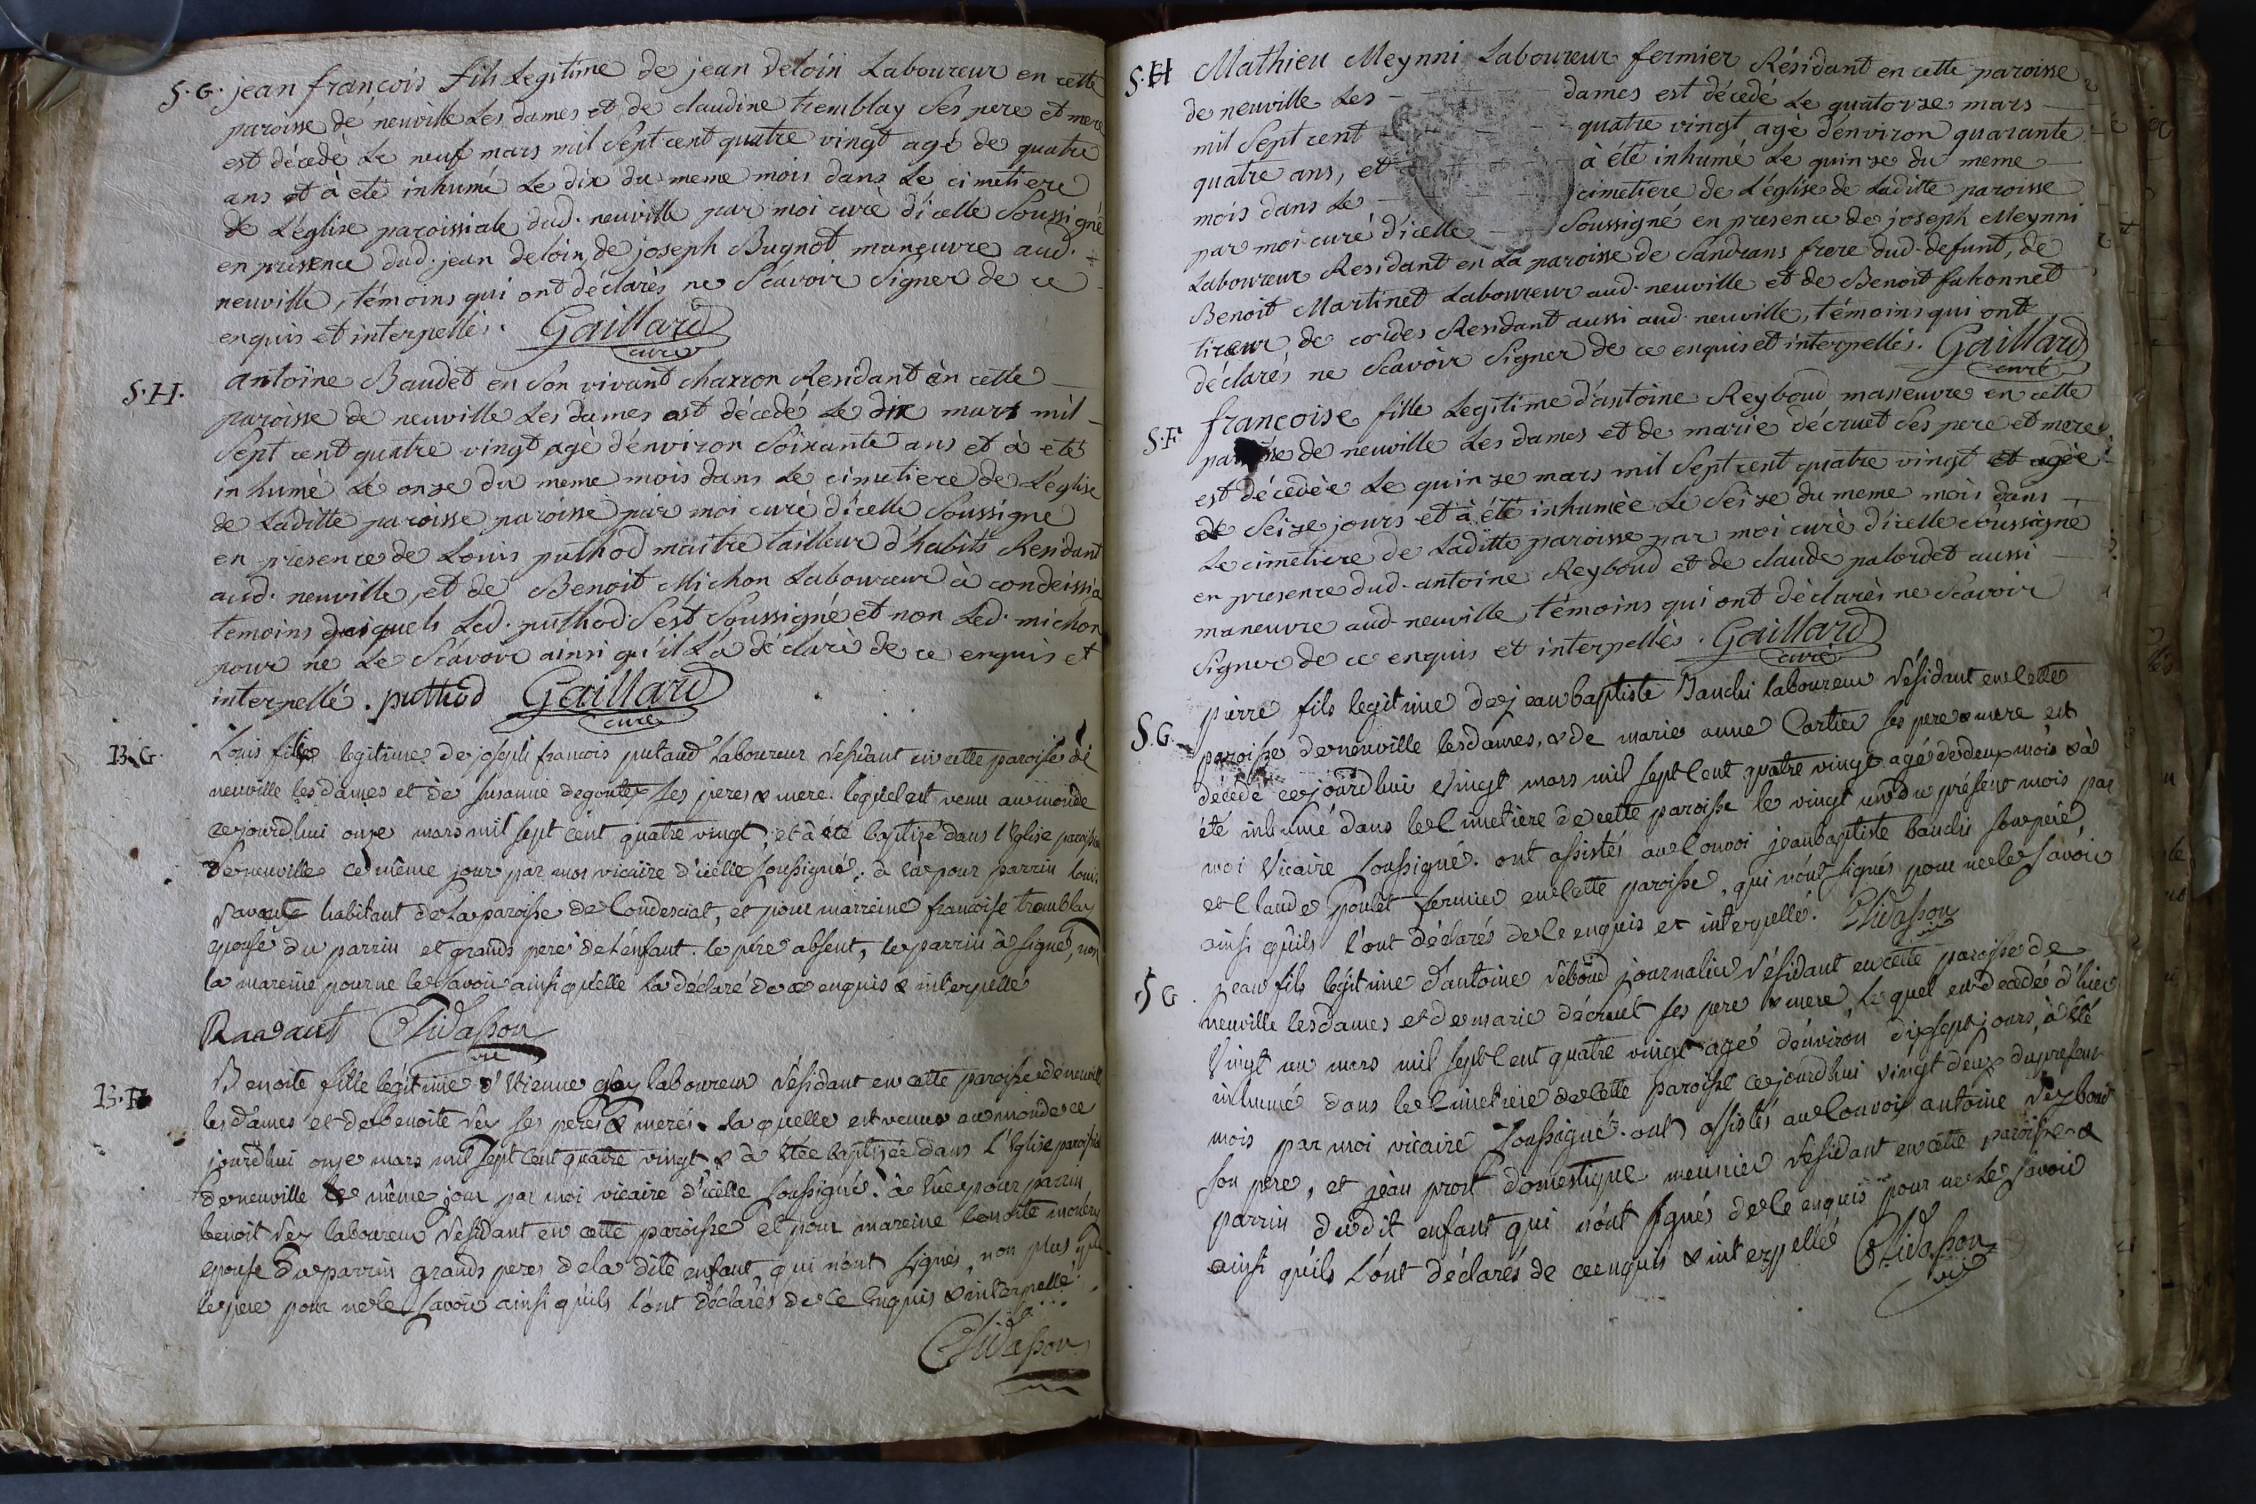 S.G. jean françois fils Legitime de jean deloin Laboureur en cette
paroisse de neuville Les dames et de claudine tremblay Ses pere et mere
est décedè Le neuf mars mil Sept cent quatre vingt agé de quatre
ans et à eté inhumé Le dix du meme mois dans Le cimetiere
de L'église paroissiale dud. neuville par moi curè d'icelle Soussigné
en presence dud. jean deloin, de joseph Bugnot maneuvre aud.
neuville, témoins qui ont déclarès ne Scavoir Signer de ce
enquis et interpellés. Gaillard
curé
S.H. antoine Baudet en Son vivant charron Residant en cette
paroisse de neuville Les dames est décedé Le dix mars mil
Sept cent quatre vingt agè d'environ Soixante ans et à etè
inhumè Le onze du meme mois dans Le cimetiere de L'église
de Laditte paroisse paroisse par moi curè d'icelle Soussigné
en presence de Louis puthod maitre tailleur d'habits Residant
aud. neuville, et de Benoit Michon Laboureur à condeissia
temoins desquels Led. puthod S'est Soussigné et non Led. michon
pour ne Le Scavoir ainsi qu'il L'a déclarè de ce enquis et
interpellé. puthod Gaillard
curé
B.G. Louis fils legitime de joseph francois putaud laboureur résidant en cette paroisse de
neuville les dames et de susanne degoute ses peres & mere. lequel est venu au monde
cejourd'hui onze mars mil sept cent quatre vingt, et à été baptizé dans l'Eglise paroissi
de neuville ce même jour par moi vicaire d'icelle soussigné. a eû pour parrin louis
ravaut habitant de la paroisse de Condesciat, et pour marreine francoise tremblay
epouse du parrin et grands peres de l'enfant. le pére absent, le parrin à signé, non
la mareine pour ne le savoir ainsi qu'elle l'a déclaré de ce enquis & interpellé
Ravaut Chidasson
vic
B.F. Benoite fille légitime d'Etienne guy laboureur résidant en cette paroisse de neuville
les dames et de benoite rey ses peres & merés. la quelle est venue au monde ce
jourd'hui onze mars mil sept cent quatre vingt & à étée baptizée dans l'Eglise paroissial
de neuville le même jour par moi vicaire d'icelle soussigné. à eûe pour parrin
benoit rey laboureur résidant en cette paroisse et pour mareine benoite
epouse du parrin grands peres de la dite enfant, qui n'ont signés, non plus que
le pere pour ne le savoir ainsi qu'ils l'ont déclarés de ce enquis & interpellé.
Chidasson
S.H Mathieu Meynni Laboureur fermier Résidant en cette paroisse
de neuville Les dames est décedé Le quatorze mars
mil Sept cent quatre vingt agè d'énviron quarante
quatre ans, et à été inhumé Le quinze du meme
mois dans Le cimetiere de L'église de Laditte paroisse
par moi curé d'icelle Soussigné en presence de joseph Meynni
Laboureur Residant en La paroisse de Sandrans frere dud. defunt, de
Benoit Martinet Laboureur aud. neuville et de Benoit fahonnet
tireur de cordes Residant aussi aud. neuville, témoins qui ont
déclarés ne Scavoir Signer de ce enquis et interpellés. Gaillard
curé
S.F françoise fille Legitime d'antoine Reyboud maneuvre en cette
paroisse de neuville Les dames et de marie décruet Ses pere et mere
est décedée Le quinze mars mil Sept cent quatre vingt et agée
de Seize jours et à été inhumèe Le Seize du meme mois dans
Le cimetiere de Laditte paroisse par moi curè d'icelle soussigné
en presence dud. antoine Reyboud et de claude palordet aussi
maneuvre aud. neuville, témoins qui ont déclarès ne Scavoir
Signer de ce enquis et interpellès. Gaillard
curé
S.G. pierre fils legitime de jean baptiste Baudu laboureur résidant en cette
paroisse de neuville les dames, & de marie anne Cartier ses pere & mere est
décédé cejourd'hui vingt mars mil sept cent quatre vingt agé de deux mois & à
été inhumé dans le Cimetiere de cette paroisse le vingt un du présent mois par
moi Vicaire soussigné. ont assistés au Convoi jean baptiste baudu son pere
et Claude poulet fermier en cette paroisse, qui n'ont signés pour ne le savoir
ainsi qu'ils l'ont déclarés de ce enquis et interpellé. Chidasson
vic
S G. jean fils légitime d'antoine réboud journalier résidant en cette paroisse de
neuville les dames et de marie décruet ses pere & mere, le quel est décédé d'hier
Vingt un mars mil sept Cent quatre vingt agé d'énviron dix sept jours, à été
inhumé dans le Cimetiere de cette paroisse cejourdhui vingt deux du present
mois par moi vicaire soussigné. ont assistés au Convoi antoine reyboud
son pere, et jean prost domestique meunier résidant en cette paroisse &
parrin du dit enfant qui n'ont signés de ce enquis pour ne le savoir
ainsi qu'ils l'ont déclarés de ce enquis & interpellé Chidasson
vic